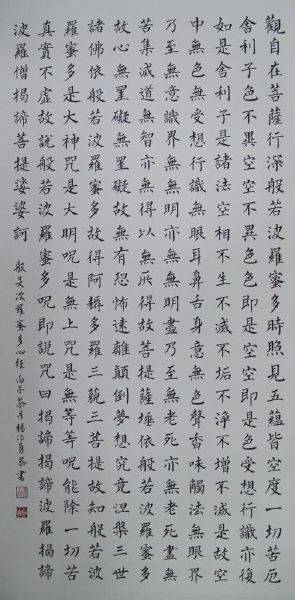 觀自在菩薩行深般若波羅蜜多時照見五蘊皆空度一切苦厄
舍利子色不異空空不異色色即是空空即是色受想行識亦復
如是舍利子是諸法空相不生不滅不垢不淨不增不減是故空
中無色無受想行識無眼耳鼻舌身意無色聲香味觸法無眼界
乃至無意識界無無明亦無無明盡乃至無老死亦無老死盡無
苦集滅道無智亦無得以無所得故菩提薩埵依般若波羅蜜多
故心無罣礙無罣礙故無有恐怖遠離顛倒夢想究竟涅槃三世
諸佛依般若波羅蜜多故得阿耨多羅三藐三菩提故知般若波
羅蜜多是大神咒是大明呪是無上咒是無等等呪能除一切苦
真實不虛故說般若波羅蜜多呪即說咒曰揭諦揭諦波羅揭諦
波羅僧揭諦菩提娑婆訶
般若波羅蜜多心經 丙子 月楊 勇恭書